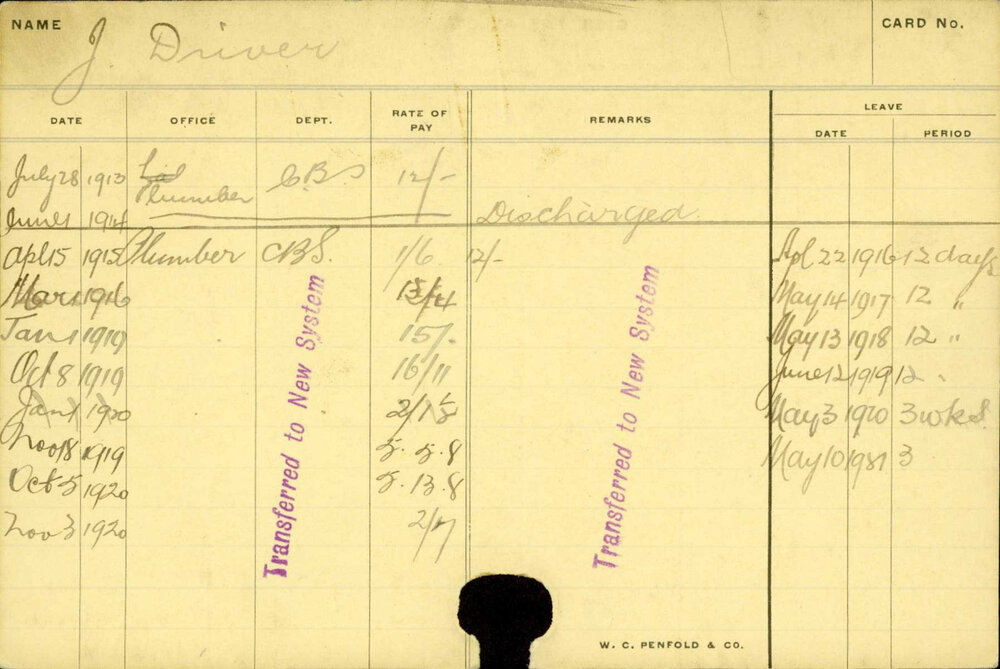 NAME J. Driver CARD No.
DATE OFFICE DEPT. RATE OF PAY REMARKS LEAVE
DATE PERIOD
July 28 1913 Plumber C.B.S 12/-
June 1 1914 Discharged.
Apl 15 1915 Plumber CBS. 1/6 12/- Apl 22 1916 12 days
Mar 1 1916 May 14 1917 12 "
Jan 1 1919 15/- May 13 1918 12 "
Oct 8 1919 16/11 June 12 1919 12 "
Jan 1 1920 May 3 1920 3 wks.
Nov 18 1919 5. 5. 8 May 10 3
Oct 5 1920 5. 13. 8
Nov 3 1920 2/7
Transferred to New System
Transferred to New System
W. C. PENFOLD & CO.